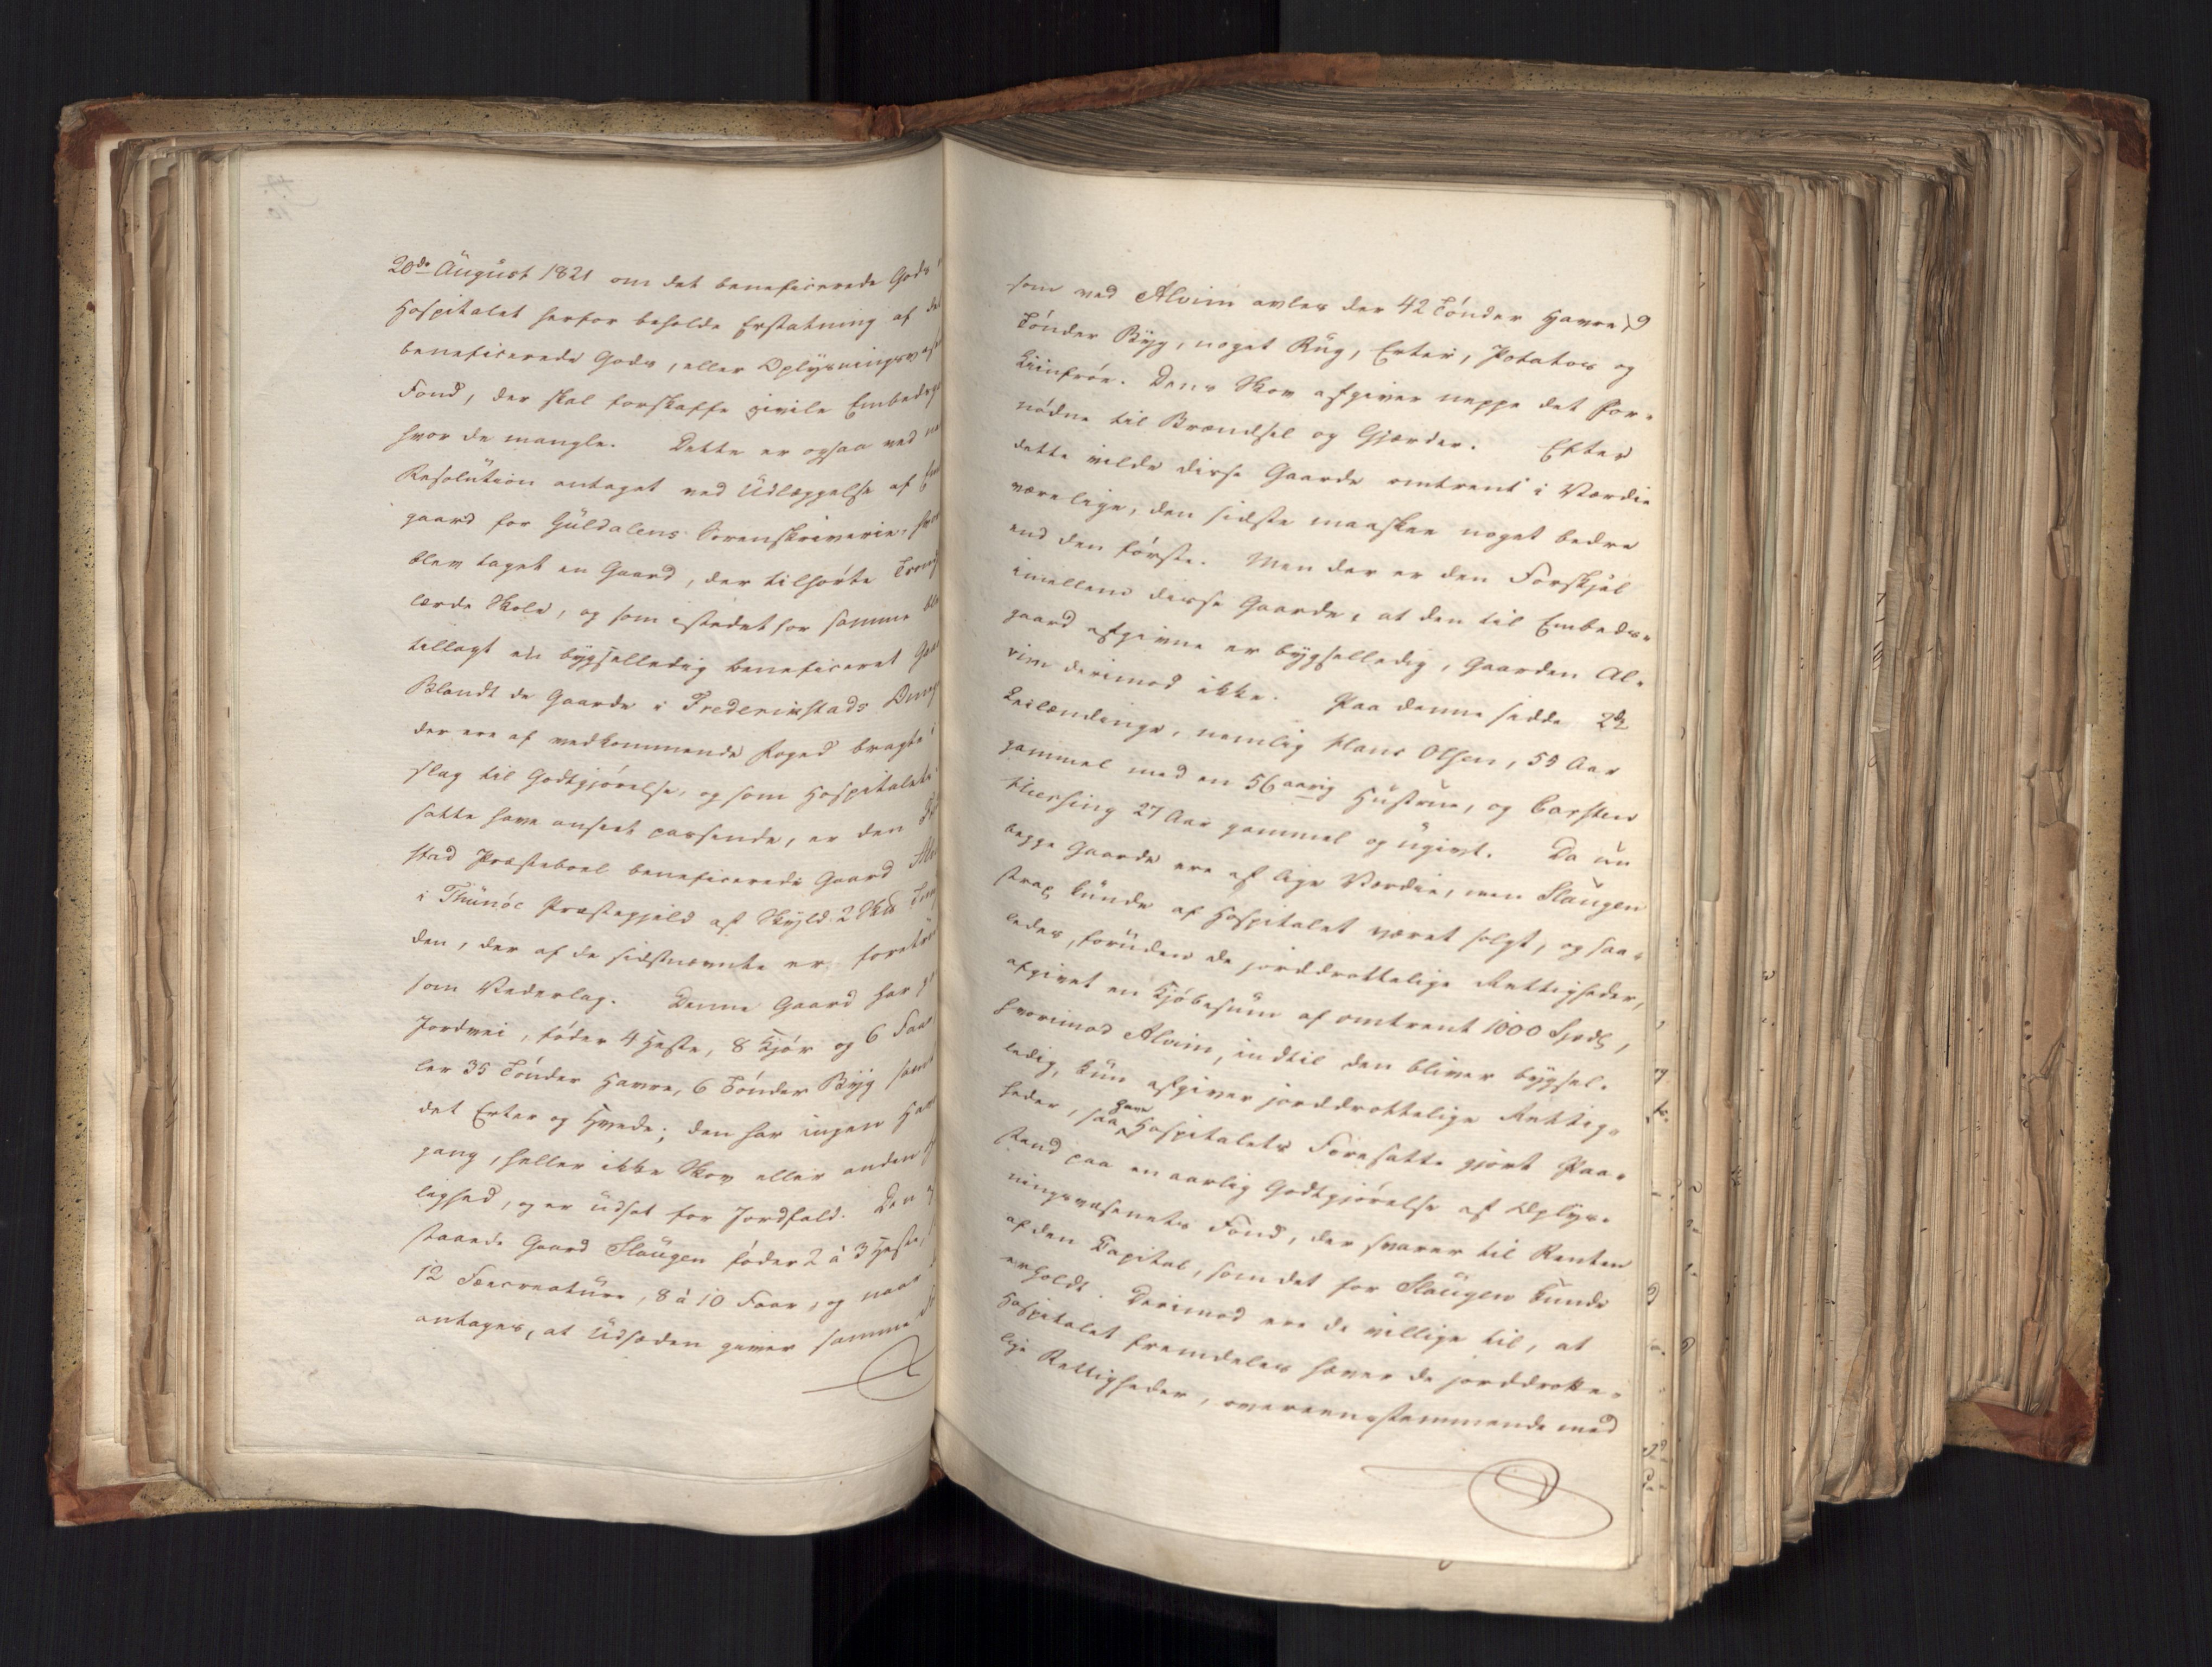 20de August 1821 om det beneficerede Gods
Hospitalet herfor beholde Erstatning af det
beneficerede Gods, eller Oplysningsvæs
Fond, der skal forskaffe civile Embedsg
hvor de mangle. Dette er ogsaa ved
Resolution antaget ved Udlæggelse af
gaard for Guldalens Sorenskriverie, hvor
blev taget en Gaard, der tilhørte Trond
lærde Skole, og som istedet for samme ble
tillagt en bygselledig beneficeret Gaa
Blandt de Gaarde i Frederikstads Omeg
der ere af vedkommende Foged bragte i
slag til Godtgjørelse, og som Hospitalets
satte have anseet passende, er den
stad Præsteboel beneficerede Gaard Alv
i Thunøe Præstegjeld af Skyld 2 Skd
den, der af de sidstnævnte er foretru
som Vederlag. Denne Gaard har
Jordvei, føder 4 Heste, 8 Kjør og 6 Faar
ler 35 Tønder Havre, 6 Tønder Byg samt
det Erter og Hvede; den har ingen Hav
gang, heller ikke Skov eller anden
lighed, og er udsat for Jordfald. Den
staaede Gaard Slaugen føder 2 à 3 Heste,
12 Fæecreature, 8 à 10 Faar, og naar
antages, at Udsæden giver samme
som ved Alvim avles der 42 Tønder Havre, 9
Tønder Byg, noget Rug, Erter, Potatos og
Liinfrøe. Dens Skov afgiver neppe det for-
nødne til Brændsel og Gjærder. Efter
dette vilde disse Gaarde omtrent i Værdie
være lige, den sidste maaskee noget bedre
end den første. Men der er den Forskjel
imellem disse Gaarde, at den til Embeds-
gaard afgivne er bygselledig, Gaarden Al-
vim derimod ikke. Paa denne sidde 2de
Leilændinge, nemlig Hans Olsen, 55 Aar
gammel med en 56 aarig Hustrue, og Carsten
Thiersing 27 Aar gammel og ugivt. Da nu
begge Gaarde ere af lige Værdie, men Slaugen
strax kunde af Hospitalet været solgt, og saa-
ledes, foruden de jorddrottelige Rettigheder,
afgivet en Kjøbesum af omtrent 1000 Spdl,
hvorimod Alvim, indtil den bliver bygsel-
ledig, kun afgiver jorddrottelige Rettig-
heder, saa have Hospitalets Foresatte gjort Paa-
stand paa en aarlig Godtgjørelse af Oplys-
ningsvæsenets Fond, der svarer til Renten
af den Capital, som det for Slaugen kunde
erholdt. Derimod ere de villige til, at
Hospitalet fremdeles hæver de jorddrotte-
lige Rettigheder, overeensstemmende med